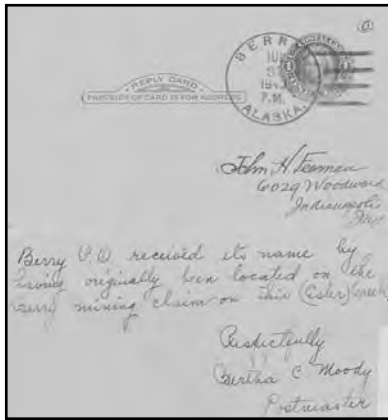 BERRY
ALASKA.
P.M.
1
REPLY CARD
THIS SIDE OF CARD IS FOR ADDRESS
John H.
6029 Woodward
Indianapolis
Berry P.O. received its name by
having originally been located on the
Berry mining claim on this (Ester) Creek
Respectfully
Bertha C Moody
Postmaster